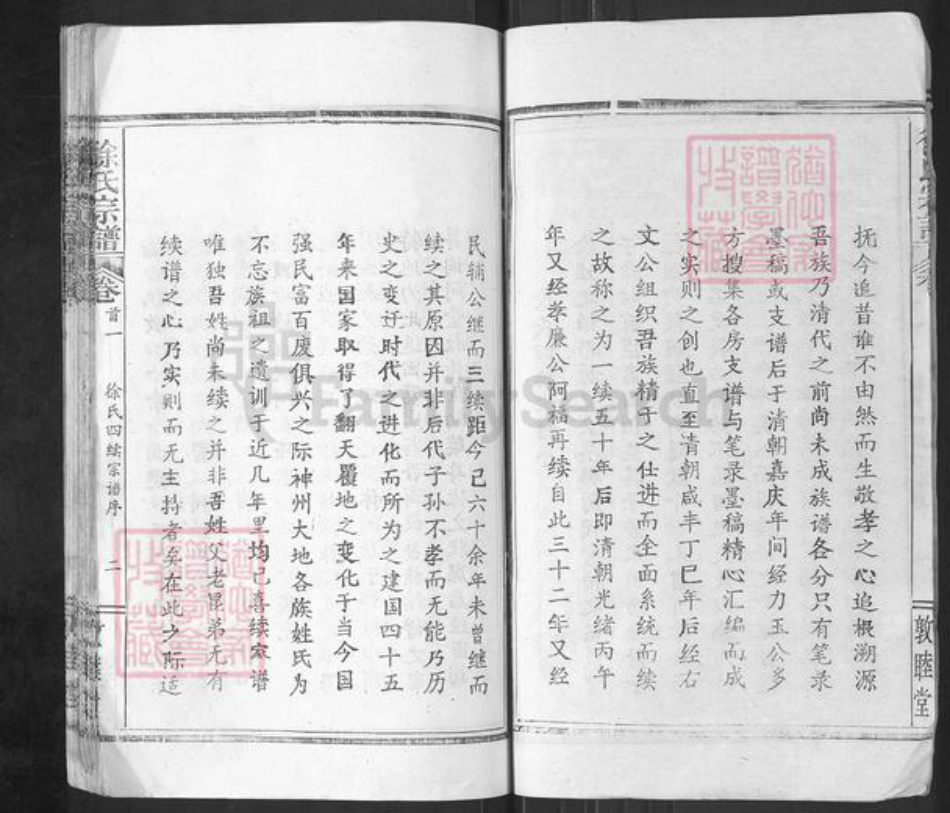 抚今追昔谁不由然而生敬孝之心追根溯源
吾族乃清代之前尚未成族谱各分只有笔录
墨稿或支谱后于清朝嘉庆年间经力玉公多
方搜集各房支谱与笔录墨稿精心汇编而成
之实则之创也直至清朝咸丰丁巳年后经右
文公组织吾族精于之仕进而全面系统而续
之故称之为一续五十年后即清朝光绪丙午
年又经孝廉公阿福再续自此三十二年又经
民辅公继而三续距今己六十余年未曾继而
续之其原因并非后代子孙不孝而无能乃历
史之变迁时代之进化而所为之建国四十五
年来国家取得了翻天覆地之变化于当今国
强民富百废俱兴之际神州大地各族姓氏为
不忘族祖之遗训于近几年里均己喜续家谱
唯独吾姓尚未续之并非吾姓父老昆弟无有
续谱之心乃实则而无主持者矣在此之际适
徐氏宗譜
卷
首一
徐氏四续宗谱序
二
敦睦堂
譜學會
收藏
FamilySearch